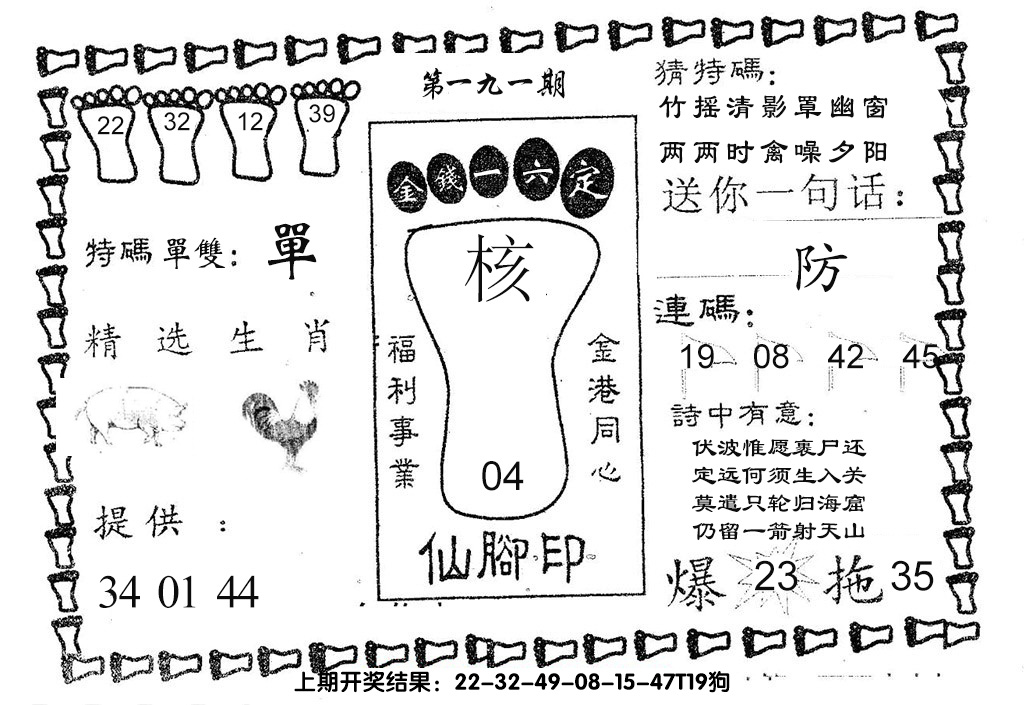 第一九一期
22 32 12 39
特碼單雙: 單
精选生肖
提供:
34 01 44
金錢一六定
核
福利事業
金港同心
04
仙腳印
猜特碼:
竹摇清影罩幽窗
两两时禽噪夕阳
送你一句话:
防
連碼:
19 08 42 45
詩中有意:
伏波惟愿裹尸还
定远何须生入关
莫遣只轮归海窟
仍留一箭射天山
爆 23 拖 35
上期开奖结果: 22-32-49-08-15-47T19狗